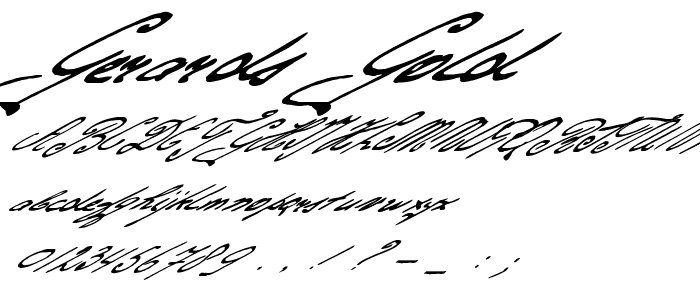 Gerards Gold
ABCDEFGHIJKLMNOPQRSTUVW
abcdefghijklmnopqrstuvwxyz
0123456789 . , ! ? - _ : ;